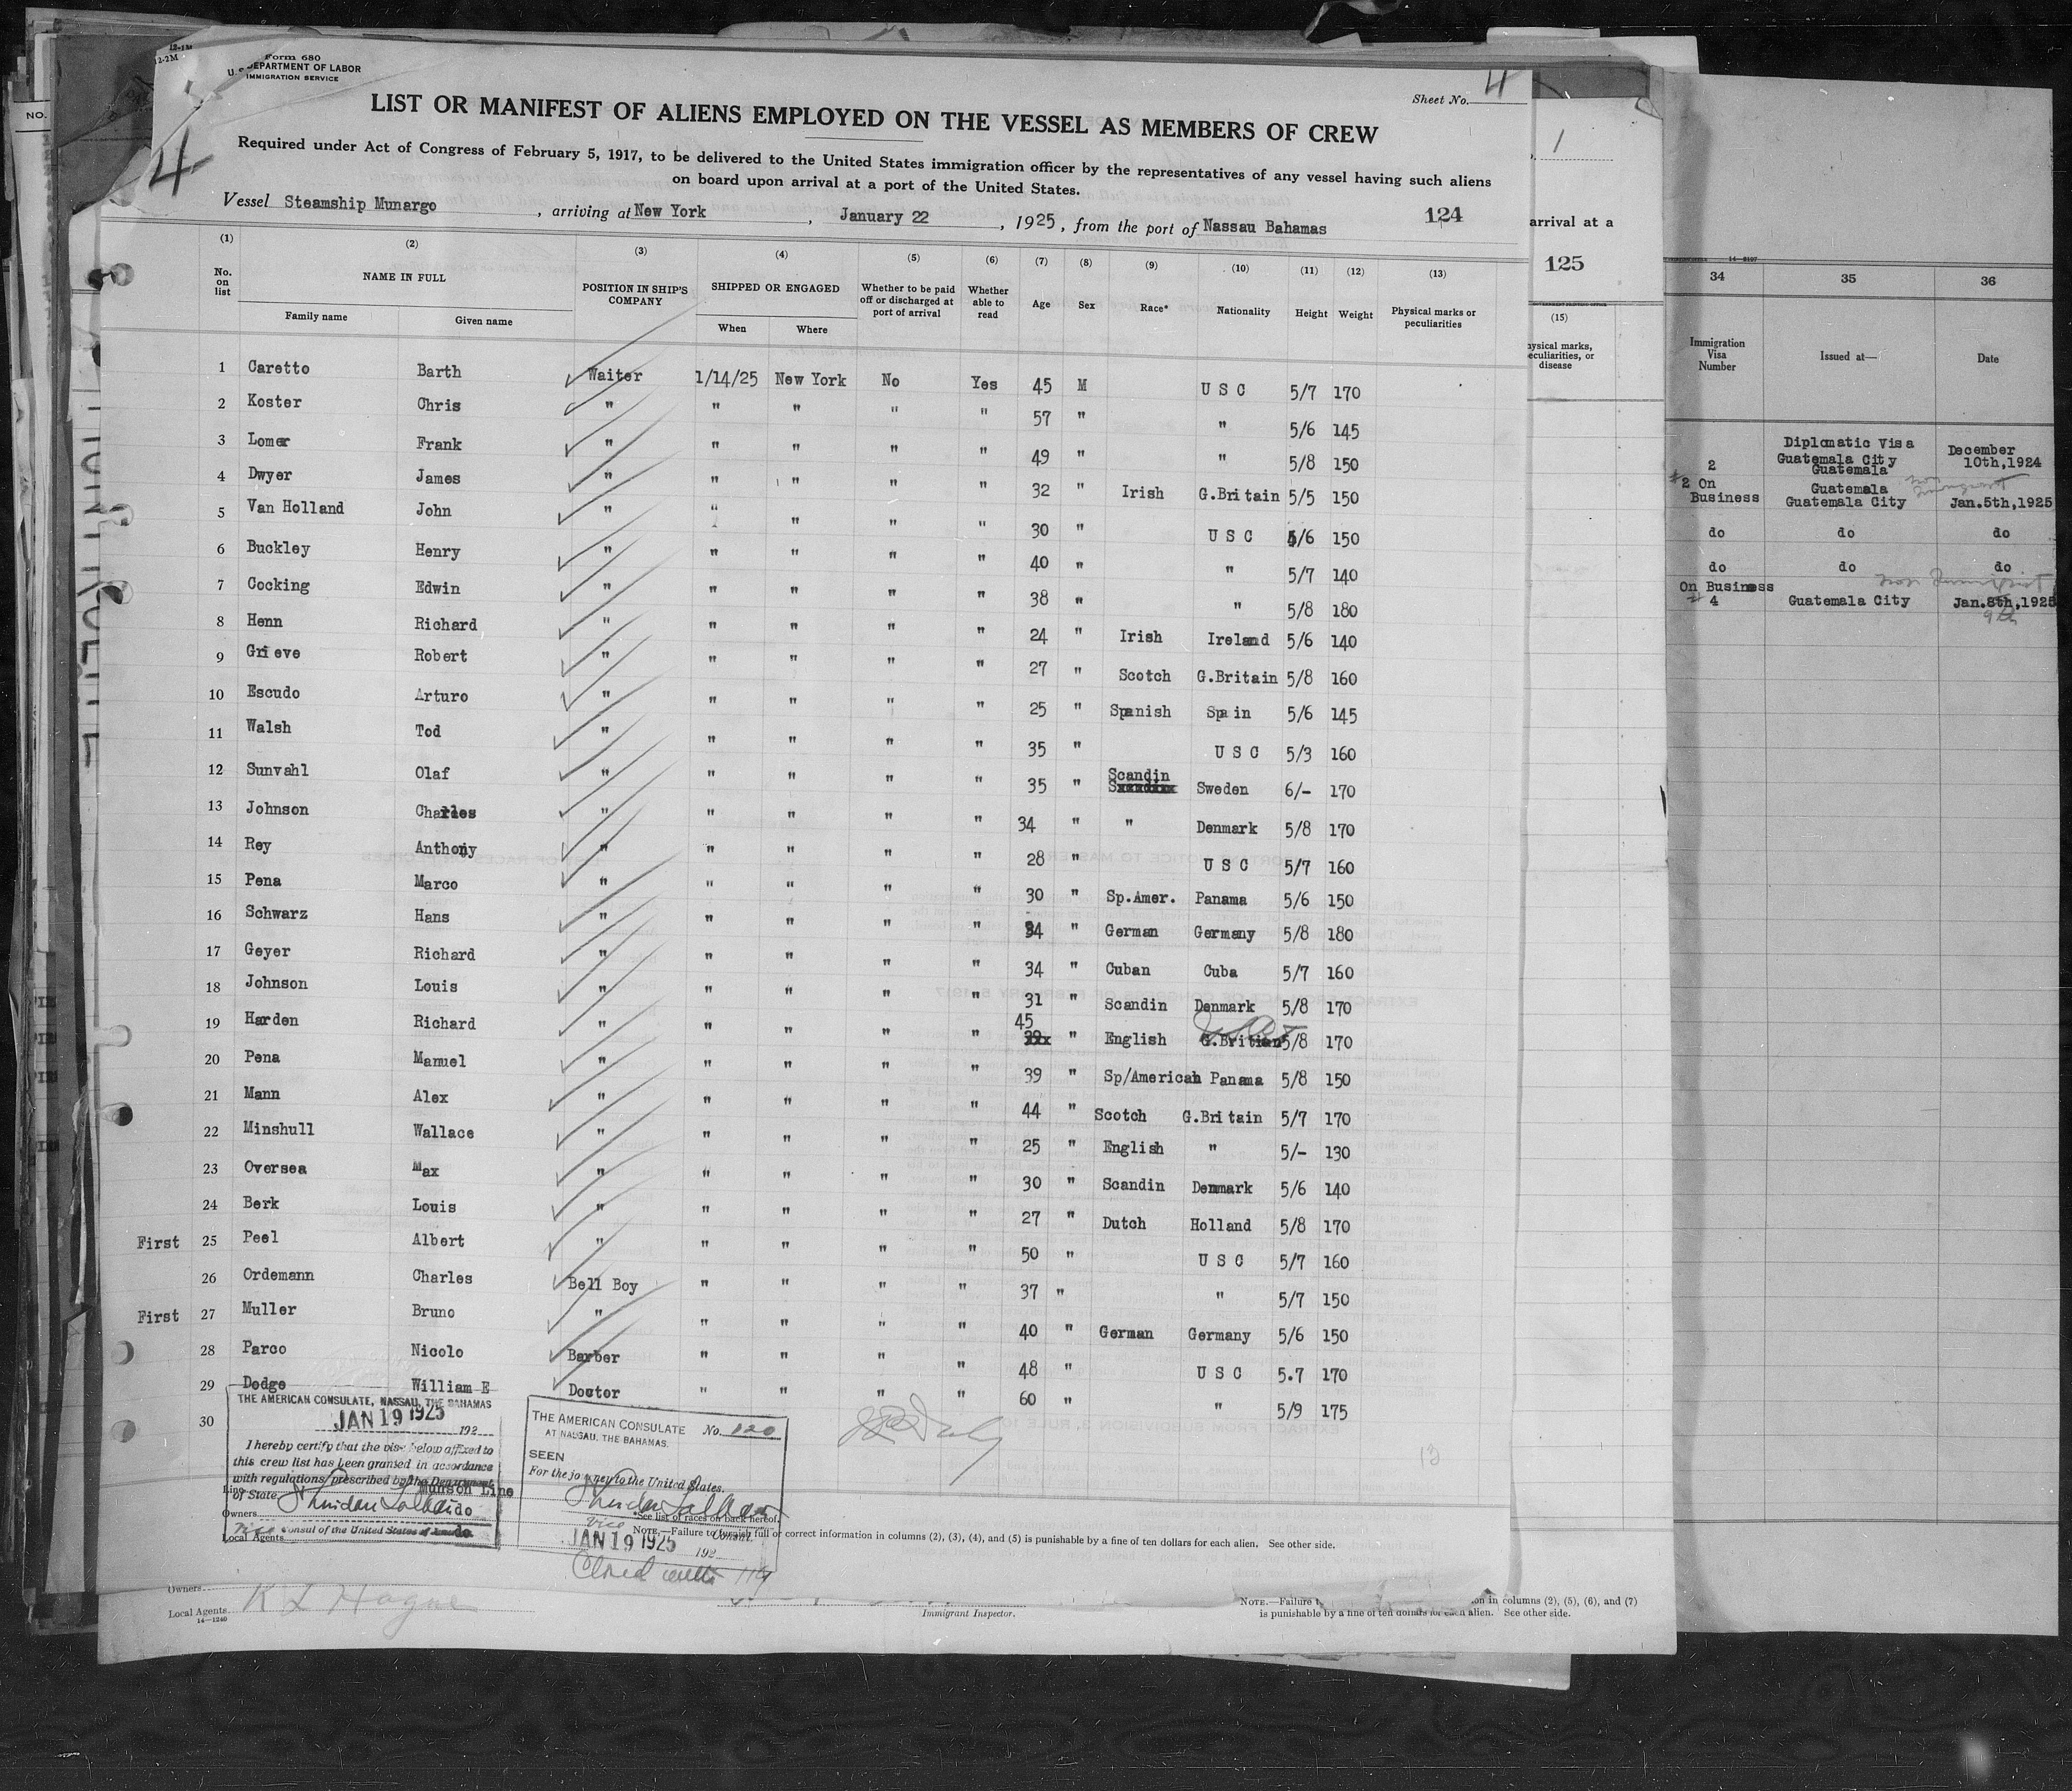 12-1M
12-2M
Form 680
U. S. DEPARTMENT OF LABOR
IMMIGRATION SERVICE
4
Sheet No. 4
LIST OR MANIFEST OF ALIENS EMPLOYED ON THE VESSEL AS MEMBERS OF CREW
Required under Act of Congress of February 5, 1917, to be delivered to the United States immigration officer by the representatives of any vessel having such aliens
on board upon arrival at a port of the United States.
Vessel Steamship Munargo, arriving at New York, January 22, 1925, from the port of Nassau Bahamas 124
(1) (2) (3) (4) (5) (6) (7) (8) (9) (10) (11) (12) (13)
No. on list NAME IN FULL Family name Given name POSITION IN SHIP'S COMPANY SHIPPED OR ENGAGED When Where Whether to be paid off or discharged at port of arrival Whether able to read Age Sex Race* Nationality Height Weight Physical marks or peculiarities
1 Caretto Barth Waiter 1/14/25 New York No Yes 45 M USC 5/7 170
2 Koster Chris " " " " " 57 " " 5/6 145
3 Lomer Frank " " " " " 49 " " 5/8 150
4 Dwyer James " " " " " 32 " Irish G.Britain 5/5 150
5 Van Holland John " " " " " 30 " USC 5/6 150
6 Buckley Henry " " " " " 40 " " 5/7 140
7 Cocking Edwin " " " " " 38 " " 5/8 180
8 Henn Richard " " " " " 24 " Irish Ireland 5/6 140
9 Grieve Robert " " " " " 27 " Scotch G.Britain 5/8 160
10 Escudo Arturo " " " " " 25 " Spanish Spain 5/6 145
11 Walsh Tod " " " " " 35 " USC 5/3 160
12 Sunvahl Olaf " " " " " 35 " Scandin Sweden 6/- 170
13 Johnson Charles " " " " " 34 " " Denmark 5/8 170
14 Rey Anthony " " " " " 28 " USC 5/7 160
15 Pena Marco " " " " " 30 " Sp.Amer. Panama 5/6 150
16 Schwarz Hans " " " " " 34 " German Germany 5/8 180
17 Geyer Richard " " " " " 34 " Cuban Cuba 5/7 160
18 Johnson Louis " " " " " 31 " Scandin Denmark 5/8 170
19 Harden Richard " " " " " 45 " English G.Britian 5/8 170
20 Pena Manuel " " " " " 39 " Sp/American Panama 5/8 150
21 Mann Alex " " " " " 44 " Scotch G.Britain 5/7 170
22 Minshull Wallace " " " " " 25 " English " 5/- 130
23 Oversea Max " " " " " 30 " Scandin Denmark 5/6 140
24 Berk Louis " " " " " 27 " Dutch Holland 5/8 170
First 25 Peel Albert " " " " " 50 " USC 5/7 160
26 Ordemann Charles Bell Boy " " " " 37 " " 5/7 150
First 27 Muller Bruno " " " " " 40 " German Germany 5/6 150
28 Parco Nicolo Barber " " " " 48 " USC 5.7 170
29 Dodge William E Doctor " " " " 60 " " 5/9 175
30
THE AMERICAN CONSULATE, NASSAU, THE BAHAMAS
JAN 19 1925 192
I hereby certify that the vise below affixed to
this crew list has been granted in accordance
with regulations prescribed by the Department
of State
Consul of the United States of
Line Munson Line
Owners do
Local Agents do
THE AMERICAN CONSULATE No. 120
AT NASSAU, THE BAHAMAS.
SEEN
For the journey to the United States.
Vice Consul.
JAN 19 1925 192
13
*See list of races on back hereof.
NOTE.—Failure to furnish full or correct information in columns (2), (3), (4), and (5) is punishable by a fine of ten dollars for each alien. See other side.
Owners
Local Agents K L Hague
14—1240
Immigrant Inspector.
NOTE.—Failure t on in columns (2), (5), (6), and (7)
is punishable by a fine of ten dollars for each alien. See other side.
1
arrival at a
125
(15)
ysical marks,
eculiarities, or
disease
NO.
34 35 36
Immigration Visa Number Issued at— Date
2 Diplomatic Visa Guatemala City Guatemala December 10th,1924
#2 On Business Guatemala Guatemala City Jan.5th,1925
do do do
do do do
On Business # 4 Guatemala City Jan.8th,1925
9th